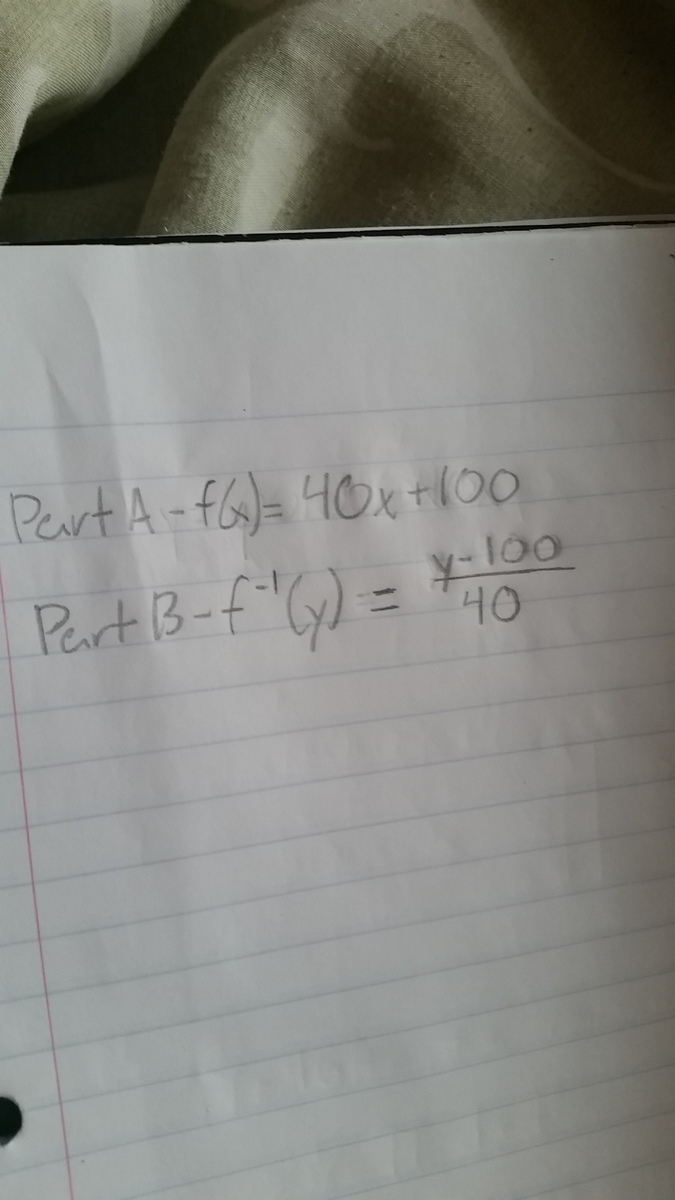 Part A - f(x) = 40x + 100
Part B - f⁻¹(y) = (y - 100)/40